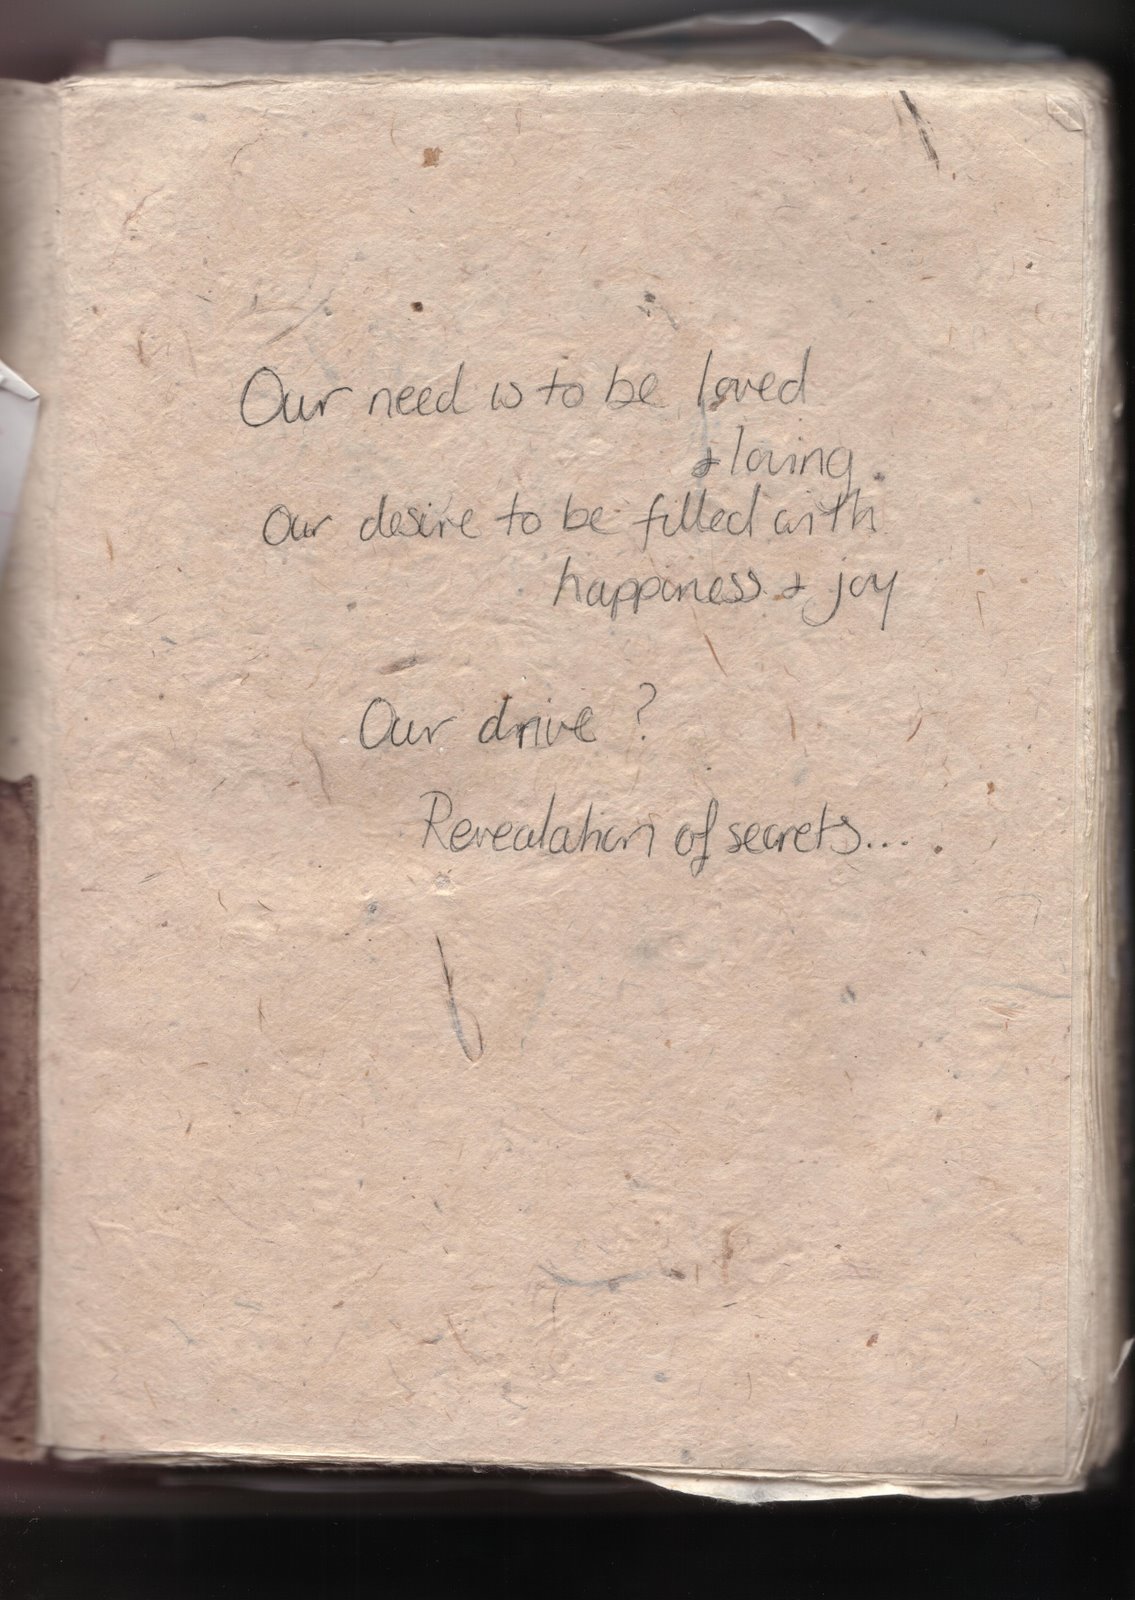 Our need is to be loved
& loving.
Our desire to be filled with
happiness & joy
Our drive?
Revealation of secrets...